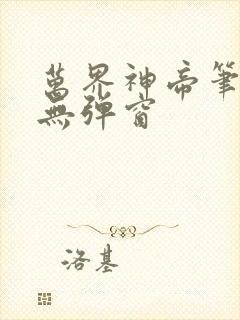 萬界神帝筆
無彈窗
洛基